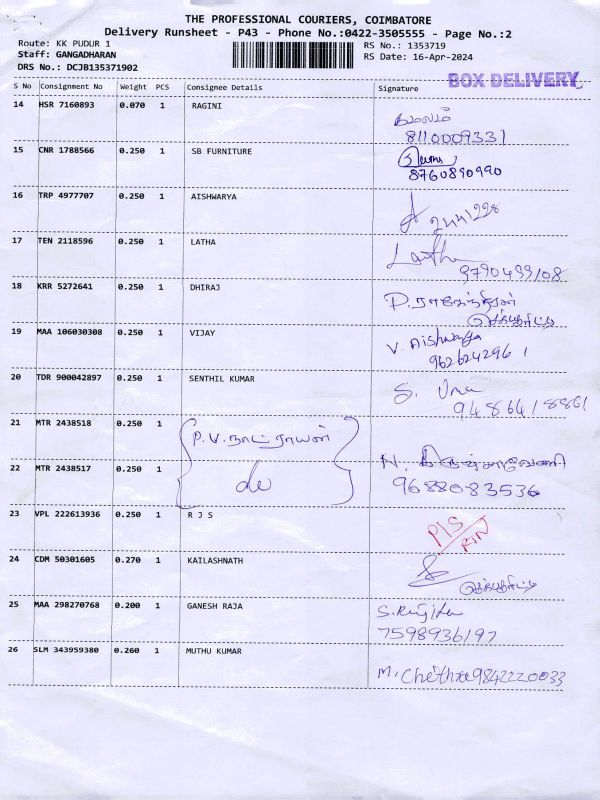 THE PROFESSIONAL COURIERS, COIMBATORE
Delivery Runsheet - P43 - Phone No.:0422-3505555 - Page No.:2
Route: KK PUDUR 1 RS No.: 1353719
Staff: GANGADHARAN RS Date: 16-Apr-2024
DRS No.: DCJB135371902
BOX DELIVERY
S No Consignment No Weight PCS Consignee Details Signature
14 HSR 7160893 0.070 1 RAGINI
கமலம்
8110009331
15 CNR 1788566 0.250 1 SB FURNITURE
8760890990
16 TRP 4977707 0.250 1 AISHWARYA
17 TEN 2118596 0.250 1 LATHA
Latha
9790499108
18 KRR 5272641 0.250 1 DHIRAJ
P. ராஜேந்திரன்
செக்யூரிட்டி
19 MAA 106030308 0.250 1 VIJAY
V. Aishwarya
9626242961
20 TDR 900042897 0.250 1 SENTHIL KUMAR
S. Uma
9486418861
21 MTR 2438518 0.250 1
P.V.நாட்ராயன்
22 MTR 2438517 0.250 1
N. கிருஷ்ணவேணி
do 9688083536
23 VPL 222613936 0.250 1 R J S
P/S
RTN
24 CDM 50301605 0.270 1 KAILASHNATH
செக்யூரிட்டி
25 MAA 298270768 0.200 1 GANESH RAJA
7598936197
26 SLM 343959380 0.260 1 MUTHU KUMAR
M. Chethra 9842220033